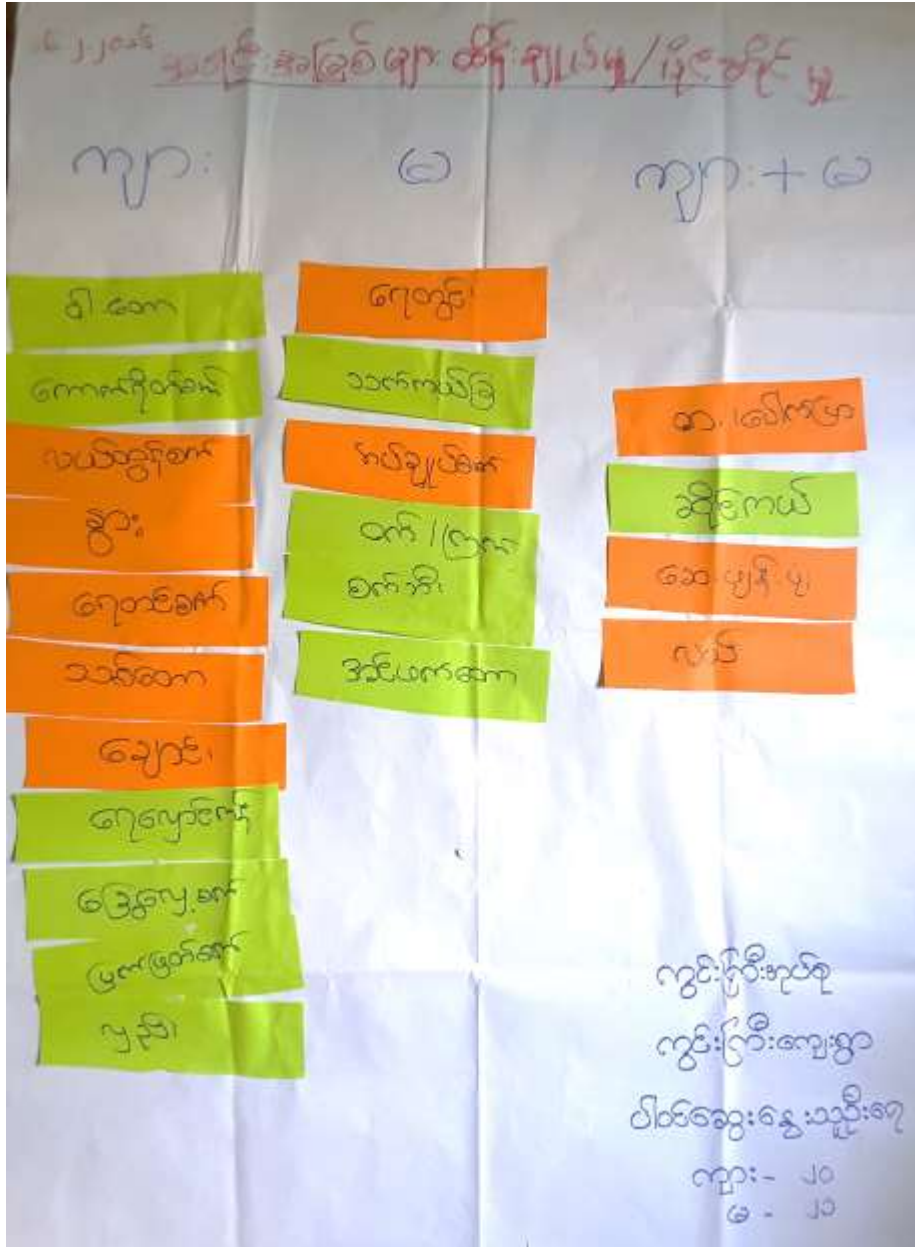 အရင်းအမြစ်များ ထိန်းချုပ်မှု/ပိုင်ဆိုင်မှု
ကျား မ ကျား + မ
ဝါးတော
ကောက်ရိတ်စက်
လယ်ထွန်စက်
နွား
ရေတင်စက်
သစ်တော
ချောင်း
ရေလှောင်ကန်
ခြွေလှေ့စက်
မြက်ဖြတ်စက်
လှည်း
ရေတွင်း
သက်ကယ်ခြံ
အပ်ချုပ်စက်
ဝက်/ကြက်
စက်ဘီး
အင်ဖက်တော
ဆိုင်ကယ်
ဆေးဖျန်းပုံး
လယ်
ကွင်းကြီးအုပ်စု
ကွင်းကြီးကျေးရွာ
ပါဝင်ဆွေးနွေးသူဦးရေ
ကျား - ၂၀
မ - ၂၁